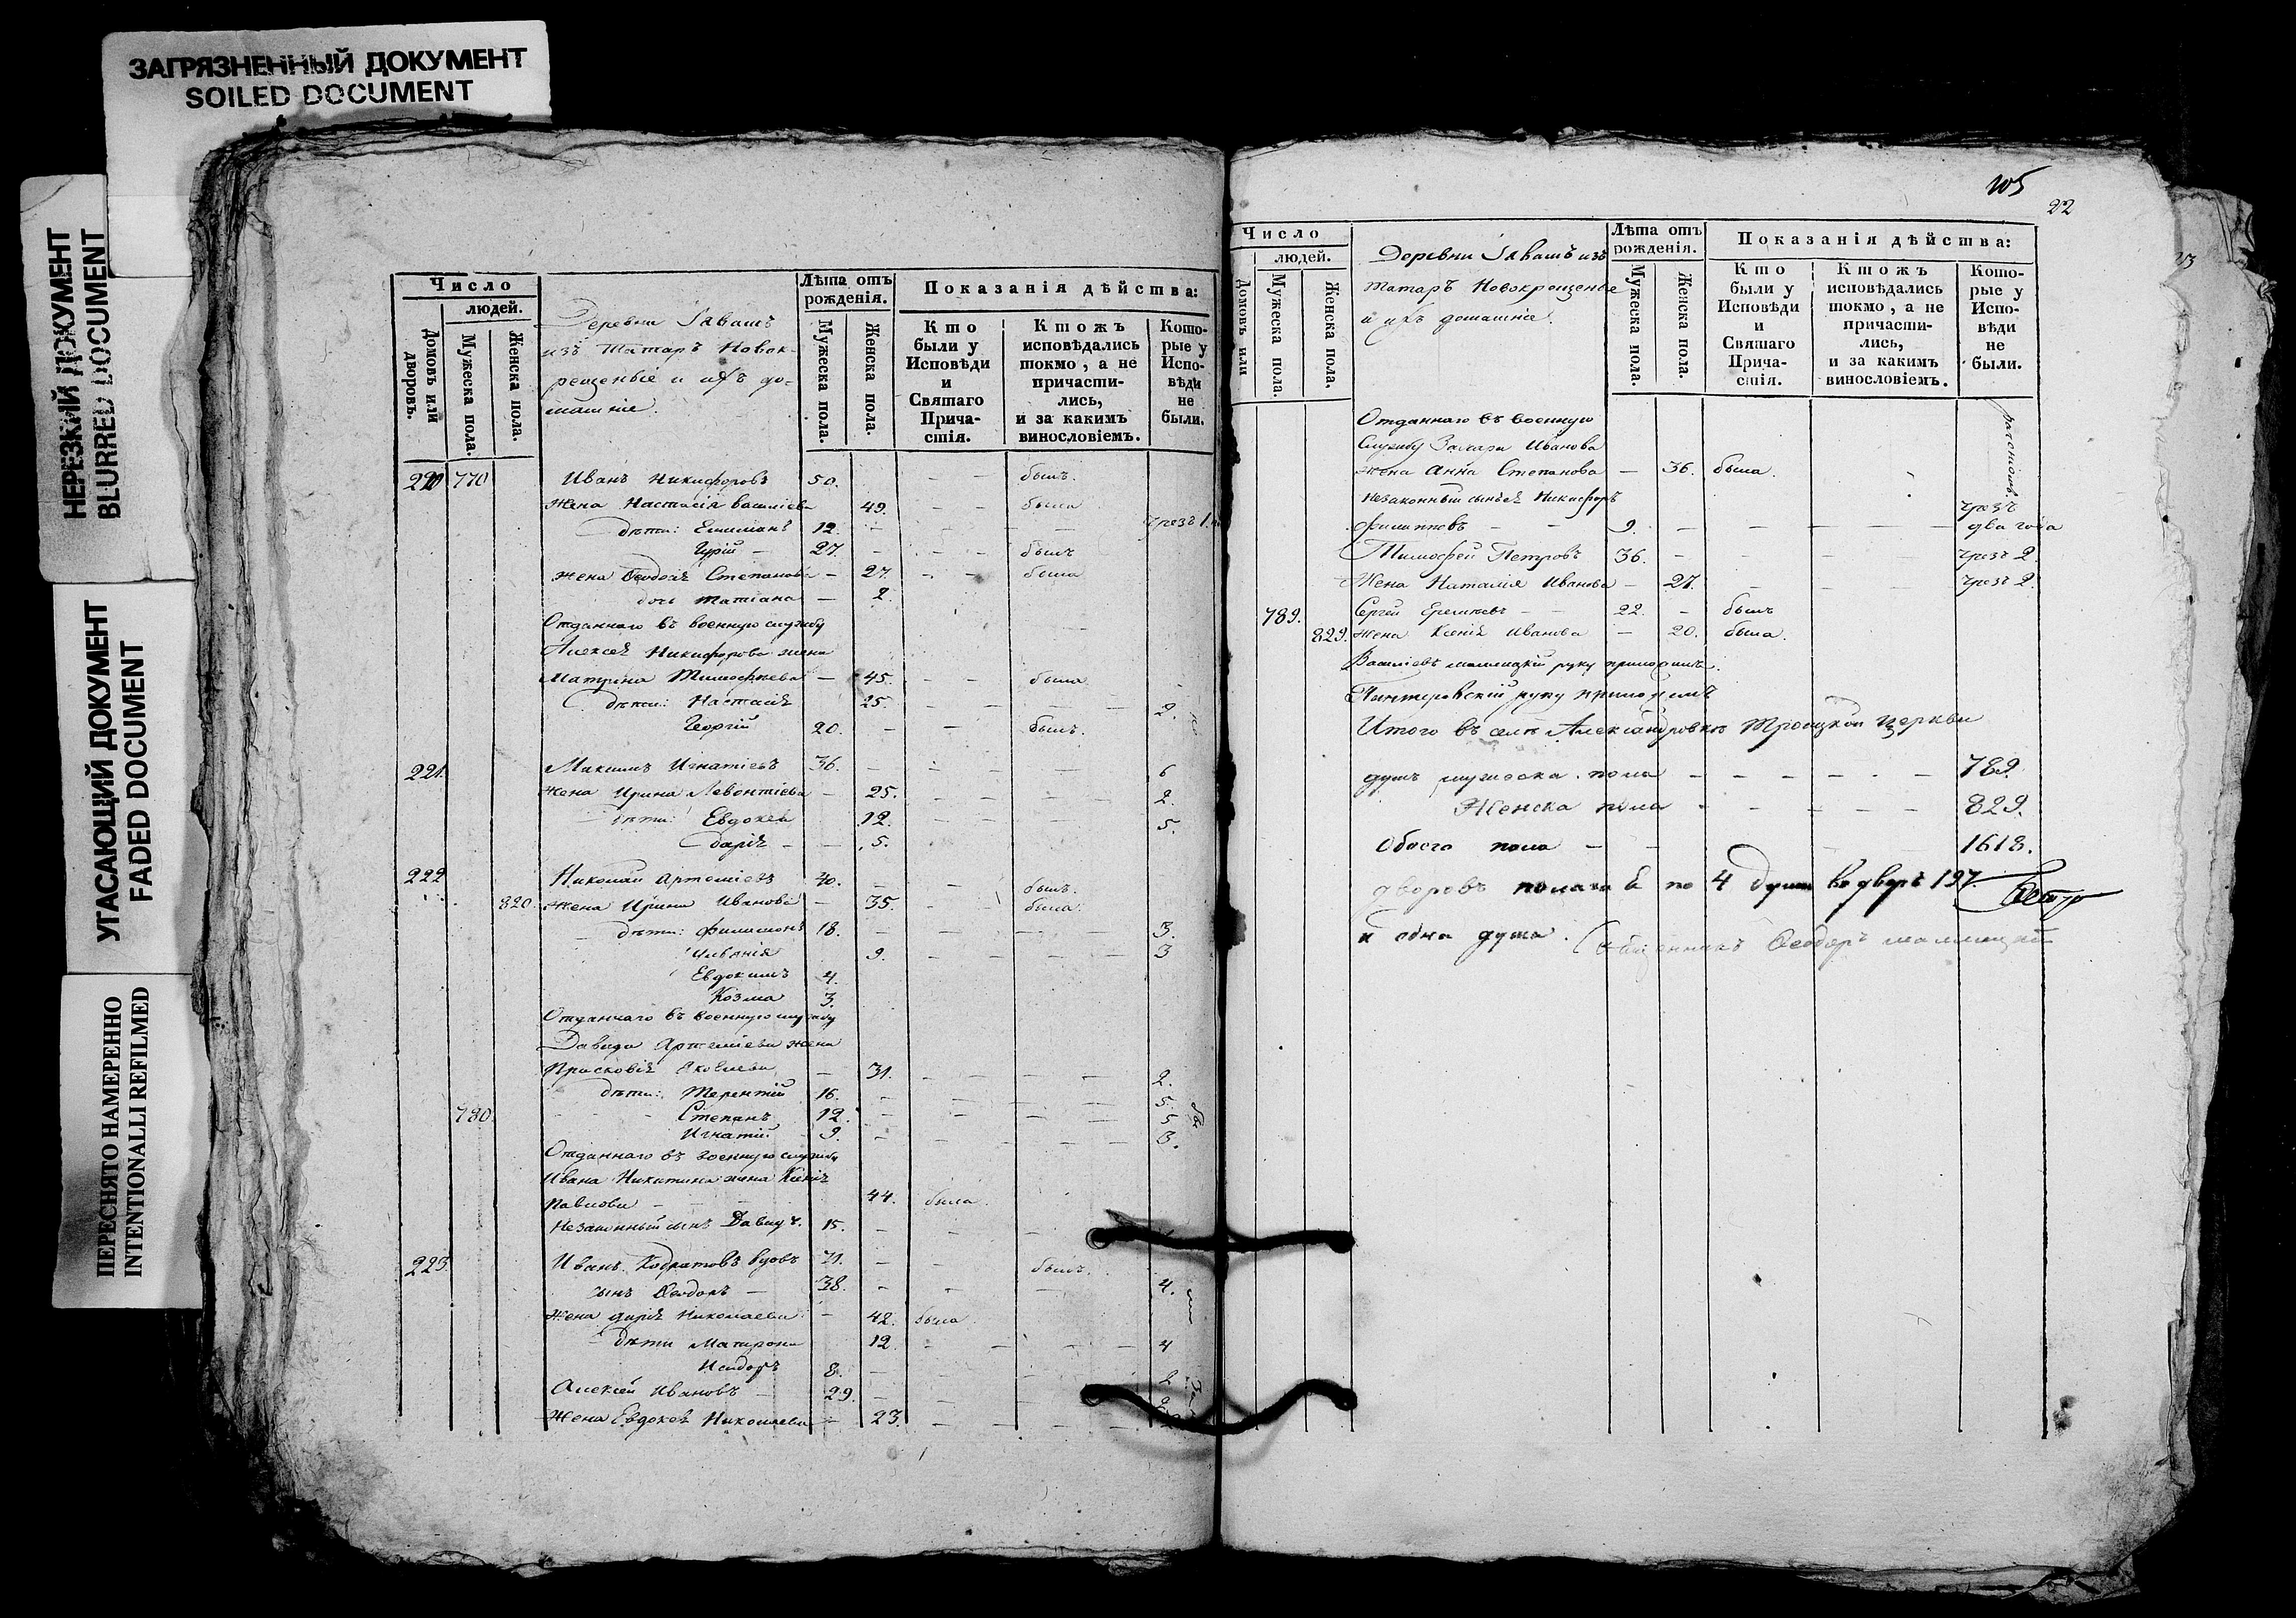 ЗАГРЯЗНЕННЫЙ ДОКУМЕНТ
SOILED DOCUMENT
НЕРЕЗКИЙ ДОКУМЕНТ
BLURRED DOCUMENT
УГАСАЮЩИЙ ДОКУМЕНТ
FADED DOCUMENT
ПЕРЕСНЯТО НАМЕРЕННО
INTENTIONALLI REFILMED
Число
людей.
Домовъ или дворовъ.
Мужеска пола.
Женска пола.
Деревни
изъ Татаръ Новок-
рещеныіе и ихъ до-
машніе.
Лѣта отъ рожденія.
Мужеска пола.
Женска пола.
Показанія дѣйства:
Кто были у Исповѣди и Святаго Прича-стія.
Ктожъ исповѣдались токмо, а не причасти-лись, и за какимъ винословіемъ.
Кото-рые у Испо-вѣди не были.
220 770 Иванъ Никифоровъ 50. — — былъ.
Жена Настасія Василіева 49. — — была
дѣти: 12. — — чрезъ 1.
Гурій — 27. — — былъ
жена Ѳеодосія Степанова — 27. — — была
дочь Татіана — 2.
Отданнаго въ военную службу
Алексея Никифорова жена
Матрина Тимофеева — 45. — — была
дѣти: Настасія 25. — — 2.
Георгій 20. — — былъ.
221. Максимъ Игнатіевъ 36. — — 6
жена Ирина Левонтіева — 25. — — 2.
дѣти: Евдокея 12. — — 5.
Дарія — — 5.
222 Николай Артеміевъ 40. — — былъ.
820. жена Ирина Иванова — 35. — — была.
дѣти: Филимонъ 18. — — 3.
9. — — 3
Евдокимъ 4.
Козма 3.
Отданнаго въ военную службу
Давида Артеміева жена
Прасковія Яковлева — 31. — — 2.
дѣти: Терентій 16. — — 5.
780. Степанъ 12. — — 5
Игнатій 9. — — 3.
Отданнаго въ военную службу
Ивана Никитина жена Ксенія
Павлова — 44. была
Незаконный сынъ Давидъ. 15. —
223. Иванъ Кодратовъ вдовъ 71. — — былъ.
сынъ Ѳеодоръ — 38. — — 4.
жена Дарія Николаева — 42. была
дѣти Матрона 12. — — 4
Исидоръ 8. —
Алексей Ивановъ — 29. —
жена Евдокея Николаева — 23. — —
105
22
Число
людей.
Домовъ или
Мужеска пола.
Женска пола.
Деревни изъ
Татаръ Новокрещеные
и ихъ домашніе.
Лѣта отъ рожденія.
Мужеска пола.
Женска пола.
Показанія дѣйства:
Кто были у Исповѣди и Святаго Прича-стія.
Ктожъ исповѣдались токмо, а не причасти-лись, и за какимъ винословіемъ.
Кото-рые у Испо-вѣди не были.
Отданнаго въ военную
службу Захара Иванова
жена Анна Степанова — 36. была.
незаконный сынъ ея Никифоръ чрезъ
Филипповъ — — 9. — — два года
Тимофей Петровъ 36. — — чрезъ 2.
Жена Наталія Иванова — 27. — — чрезъ 2.
789. Сергей — — 22. — былъ
829. жена Ксенія Иванова — 20. была.
руку приложилъ.
руку приложилъ
Итого въ селѣ Александровкѣ Троицкой церкви
душъ мужеска пола — — — 789.
Женска пола — — — 829.
Обоего пола — — 1618.
дворовъ полагая по 4 души во дворѣ 197.
и одна душа. Священникъ Ѳеодоръ
23